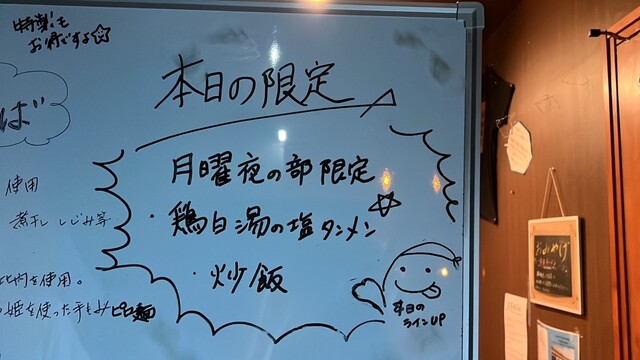 特製も
お得です☆
ば
本日の限定
月曜夜の部限定
使用
・鶏白湯の塩タンメン
煮干 しじみ等
・炒飯
比内を使用。
姫を使った手もみピロ麺
本日の
ラインUP
おみやげ